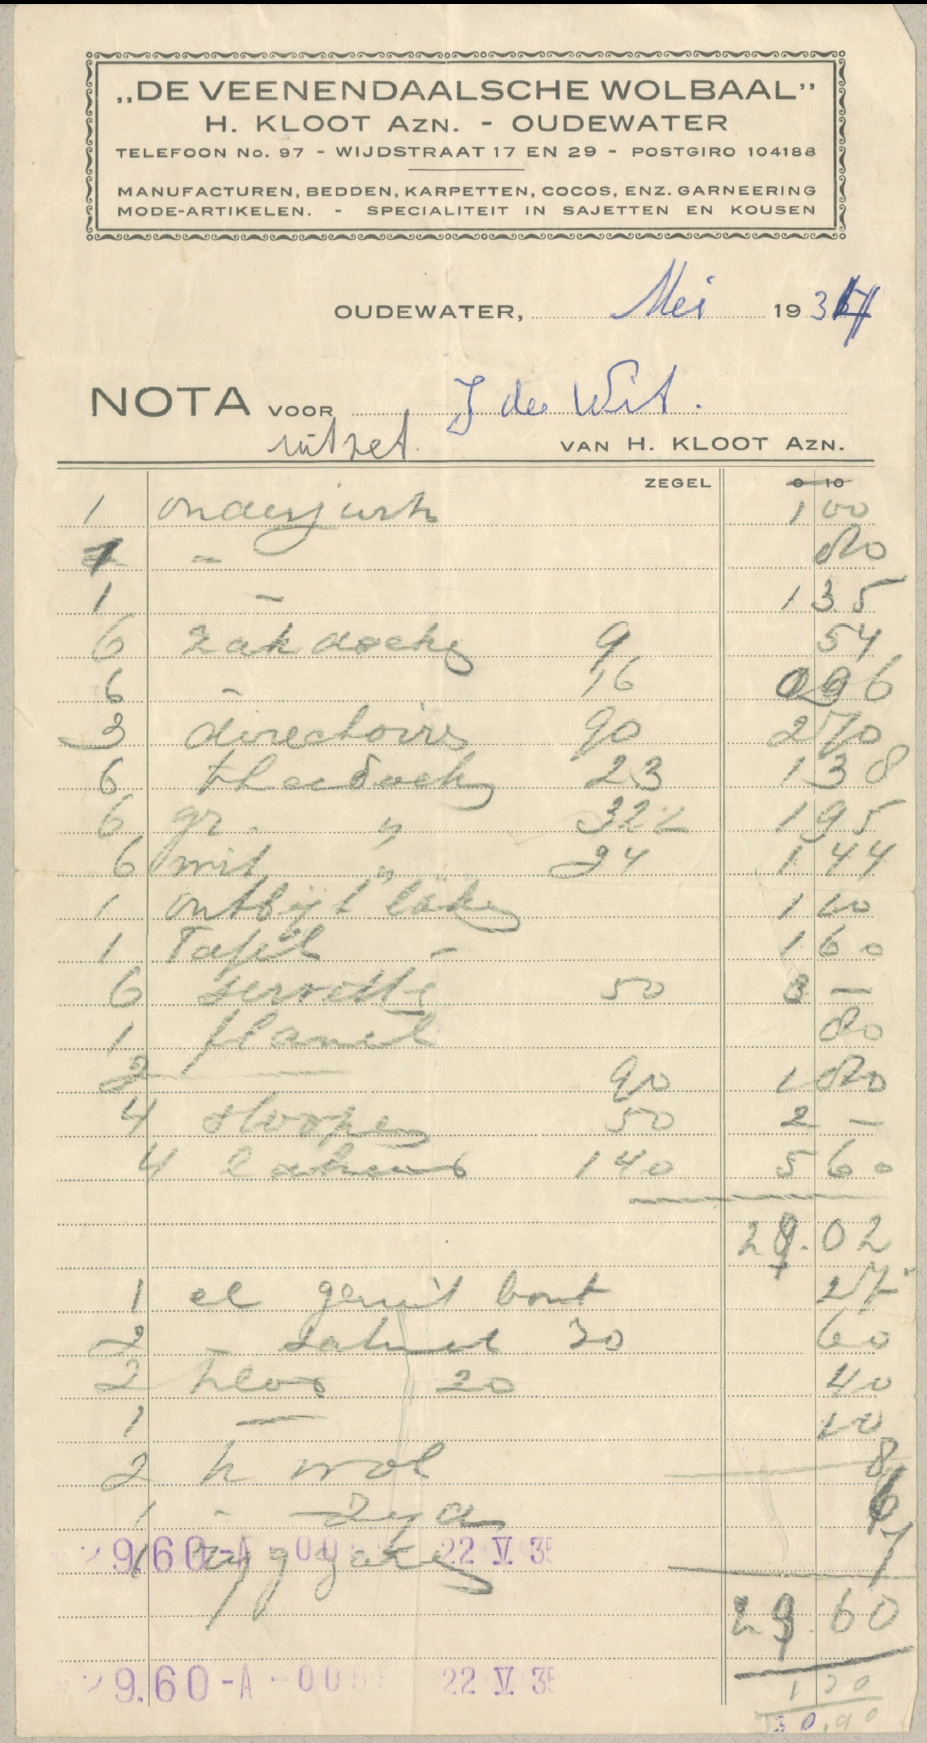 „DE VEENENDAALSCHE WOLBAAL”
H. KLOOT AZN. - OUDEWATER
TELEFOON No. 97 - WIJDSTRAAT 17 EN 29 - POSTGIRO 104188
MANUFACTUREN, BEDDEN, KARPETTEN, COCOS, ENZ. GARNEERING
MODE-ARTIKELEN. - SPECIALITEIT IN SAJETTEN EN KOUSEN
OUDEWATER, Mei 193
NOTA VOOR J de Wit.
uitzet. VAN H. KLOOT AZN.
ZEGEL 0 10
1 onderjurk 1 00
1 - 80
1 - 1 35
6 zakdoeke 9 54
6 - 16 0 96
3 directoirs 90 2 70
6 theedoeke 23 1 38
6 gr. " 32½ 1 95
6 wit " 24 1 44
1 ontbijt lake 1 10
1 Tafel - 1 60
6 servette 50 3 -
1 flanel 80
2 — 90 1 80
4 sloope 50 2 -
4 lakens 140 5 60
28.02
1 el geruit bont 27
2 - 30 60
2 20 40
1 — 10
2 k wol 8
1 - 6
1 7
29.60-A-00 22 V 3
29 60
29.60-A-005 22 V 3
1 30
30,90